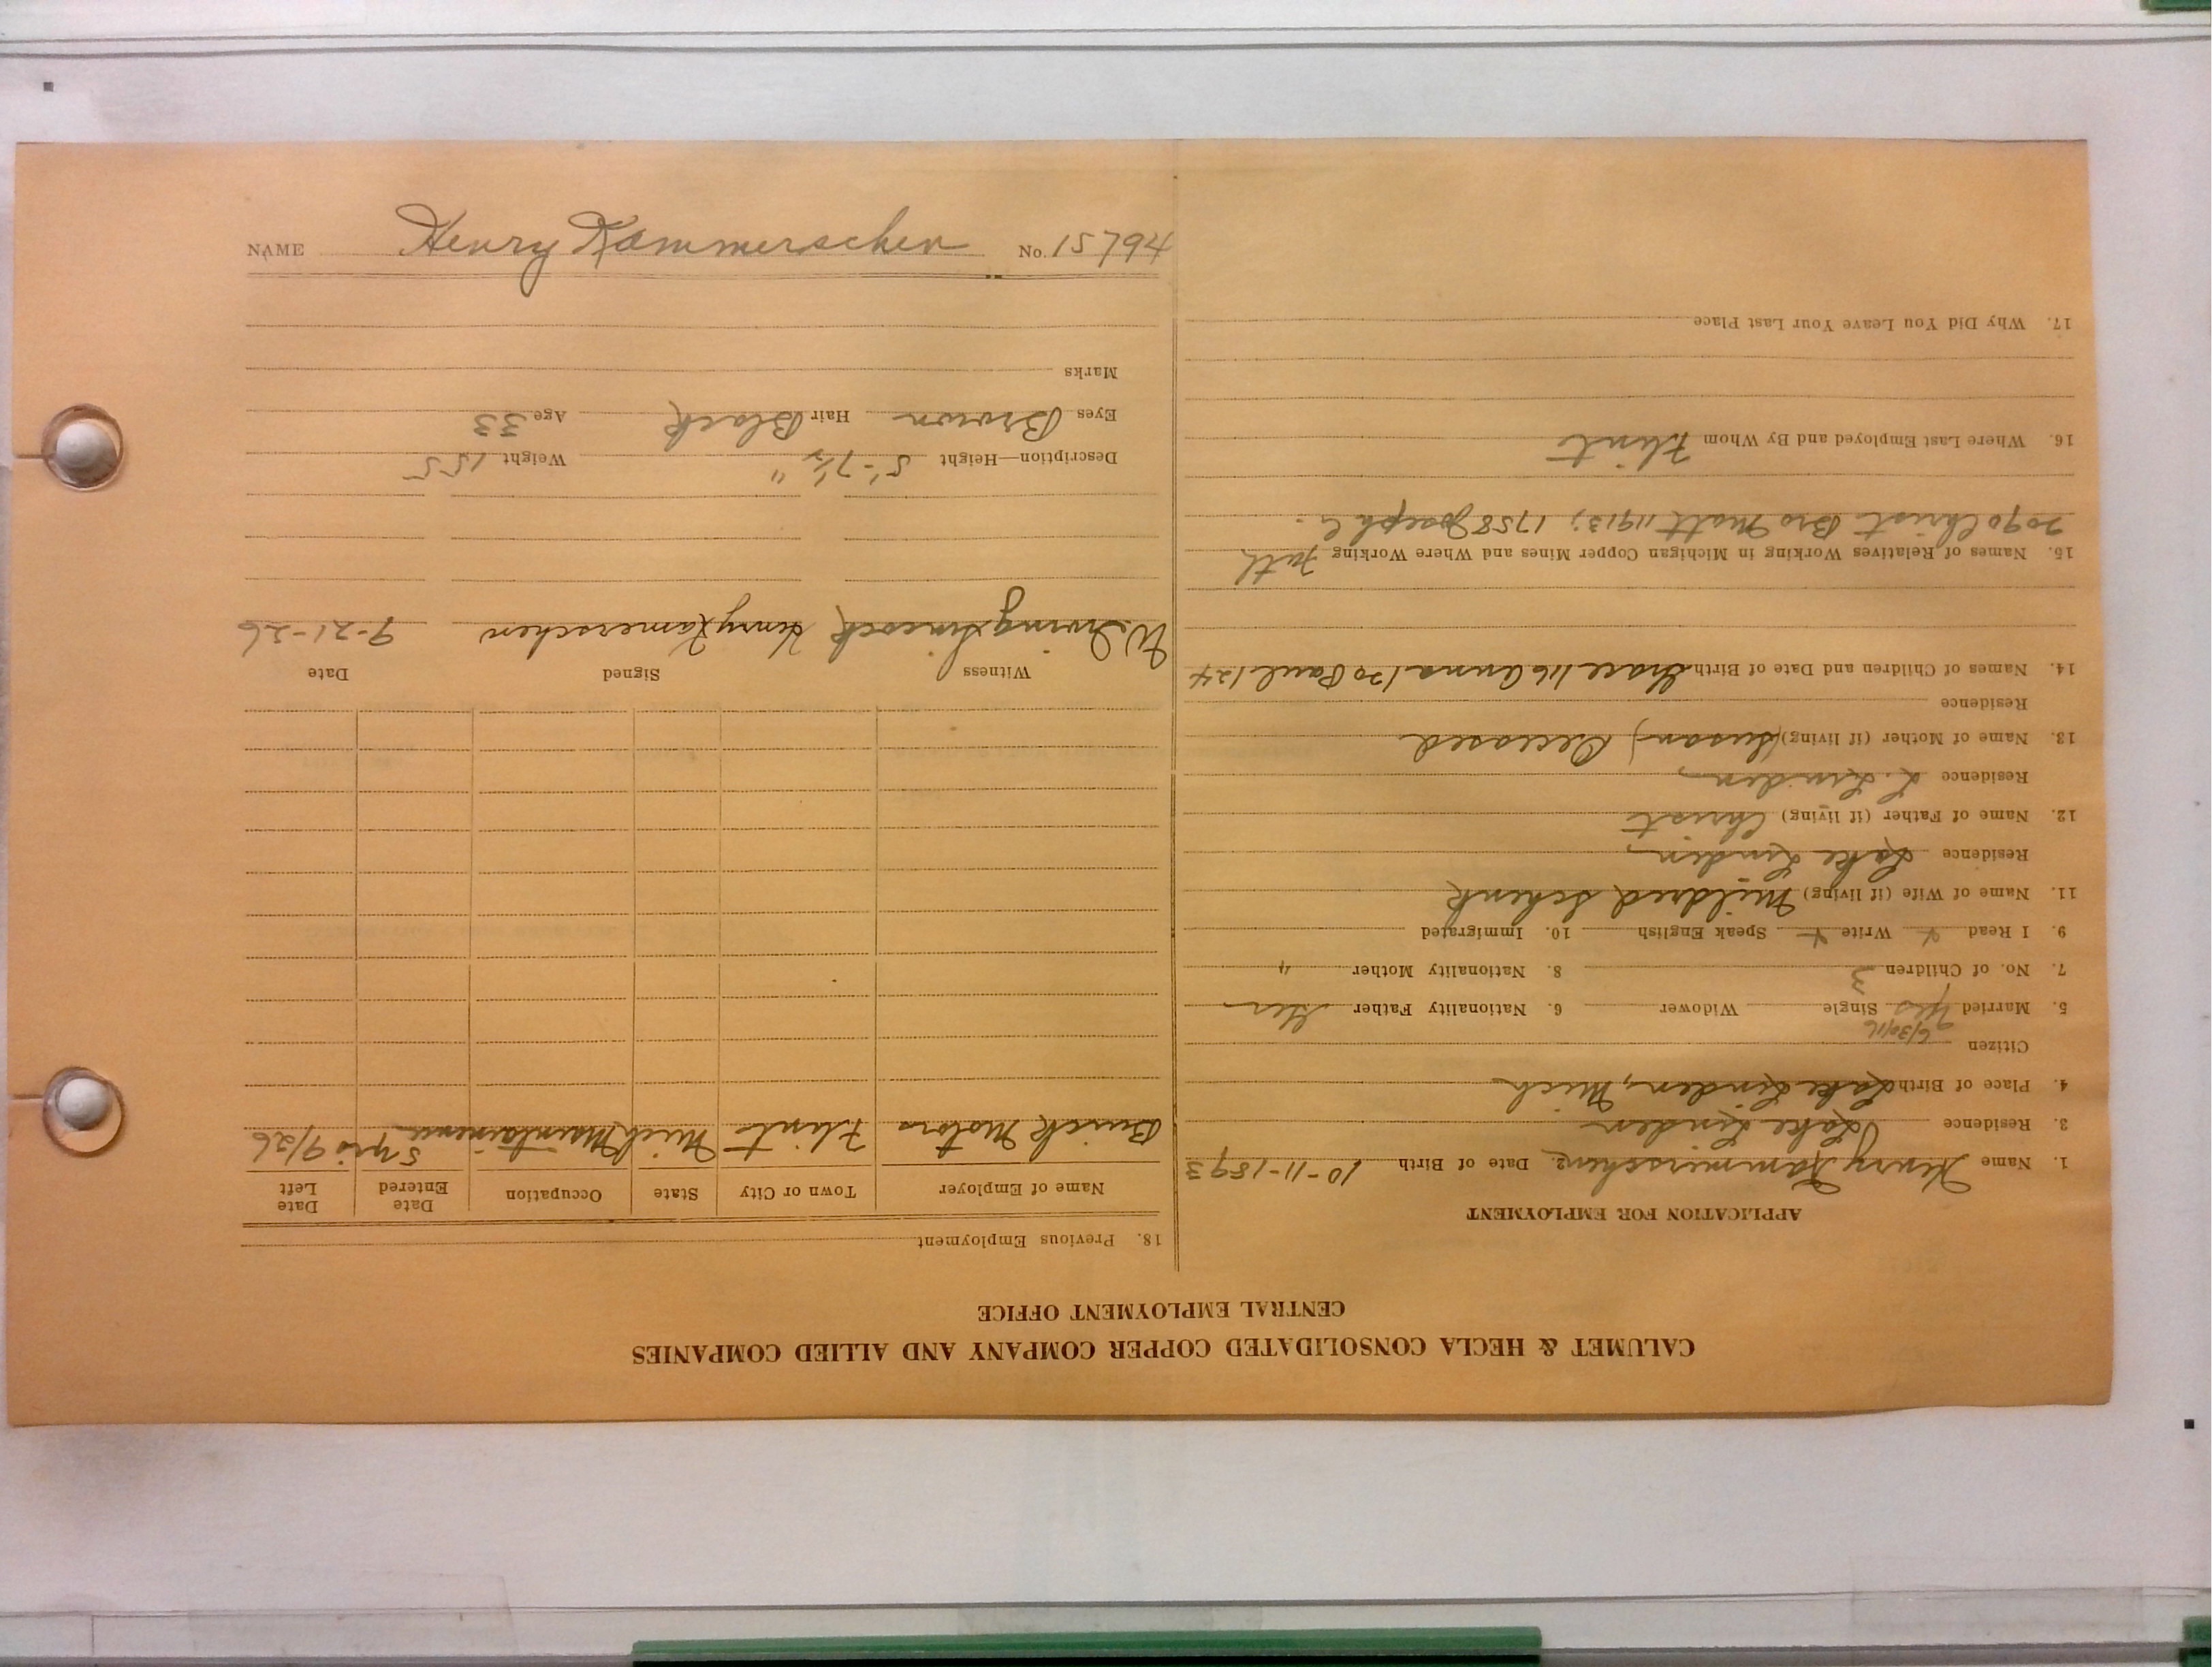 NAME Henry Kammerschen No. 15794
CALUMET & HECLA CONSOLIDATED COPPER COMPANY AND ALLIED COMPANIES
CENTRAL EMPLOYMENT OFFICE
APPLICATION FOR EMPLOYMENT
1. Name Henry Kammerschen 2. Date of Birth 10-11-1893
3. Residence Lake Linden
4. Place of Birth Lake Linden, Mich
Citizen
6/30/16
5. Married Yes Single Widower 6. Nationality Father Ger
7. No. of Children 3 8. Nationality Mother "
9. I Read Write Speak English 10. Immigrated
11. Name of Wife (if living) Mildred Schenk
Residence Lake Linden
12. Name of Father (if living) Christ
Residence L. Linden
13. Name of Mother (if living) (Susan) Deceased
Residence
14. Names of Children and Date of Birth Grace 116 Anna 120 Paul 124
15. Names of Relatives Working in Michigan Copper Mines and Where Working Fath
2090 Christ Bro Matt 11913; 1758 Joseph C.
16. Where Last Employed and By Whom Flint
17. Why Did You Leave Your Last Place
18. Previous Employment
Name of Employer Town or City State Occupation Date Entered Date Left
Buick Motors Flint Mich Maintainence 5 yrs 9/26
Witness Signed Date
W. Irving Henry Kamerschen 9-21-26
Description—Height 5'-7 1/2" Weight 155
Eyes Brown Hair Black Age 33
Marks